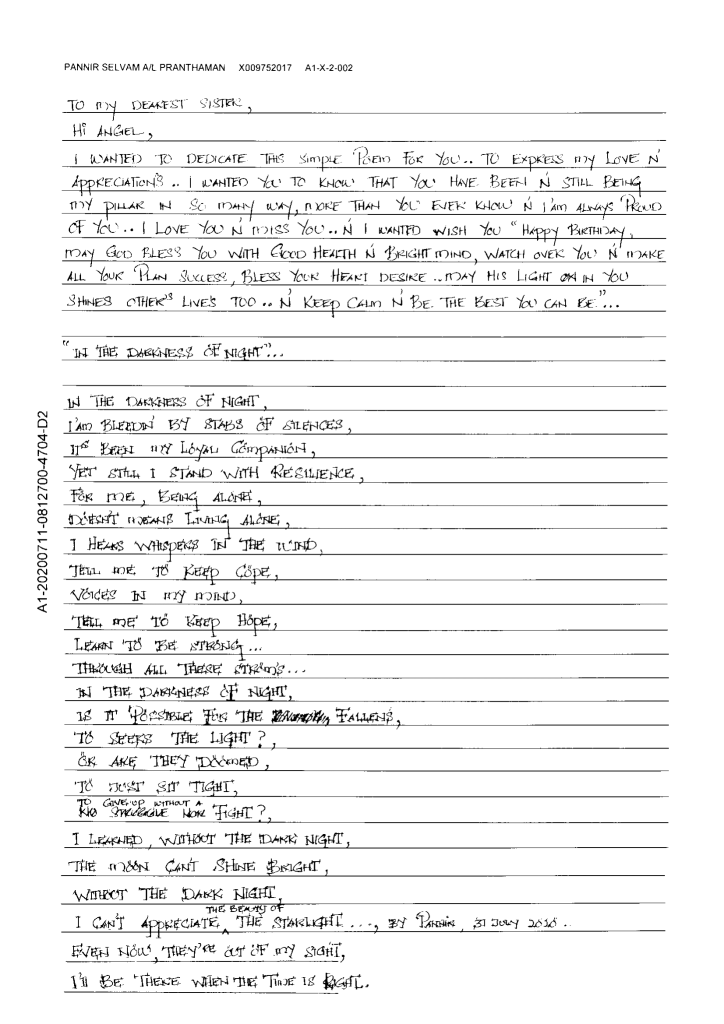 PANNIR SELVAM A/L PRANTHAMAN X009752017 A1-X-2-002
TO MY DEAREST SISTER,
Hi ANGEL,
I WANTED TO DEDICATE THIS Simple Poem FOR YOU.. TO EXPRESS MY LOVE N'
APPRECIATION'S .. I WANTED YOU TO KNOW THAT YOU HAVE BEEN N' STILL BEING
MY PILLAR IN SO MANY WAY, MORE THAN YOU EVER KNOW N' I'AM ALWAYS PROUD
OF YOU.. I LOVE YOU N' MISS YOU.. N' I WANTED WISH YOU "HAPPY BIRTHDAY,
MAY GOD BLESS YOU WITH GOOD HEALTH N' BRIGHT MIND, WATCH OVER YOU N' MAKE
ALL YOUR PLAN SUCCESS, BLESS YOUR HEART DESIRE .. MAY HIS LIGHT IN YOU
SHINES OTHER'S LIVE'S TOO .. N' KEEP CALM N' BE THE BEST YOU CAN BE"...
"IN THE DARKNESS OF NIGHT"...
IN THE DARKNESS OF NIGHT,
I'AM BLEEDIN' BY STABS OF SILENCES,
IT'S BEEN MY LOYAL COMPANION,
YET STILL I STAND WITH RESILIENCE,
FOR ME, BEING ALONE,
DOESN'T MEANS LIVING ALONE,
I HEARS WHISPERS IN THE WIND,
TELL ME TO KEEP COPE,
VOICES IN MY MIND,
TELL ME TO KEEP HOPE,
LEARN TO BE STRONG...
THROUGH ALL THESE STROM'S...
IN THE DARKNESS OF NIGHT,
IS IT POSSIBLE FOR THE FALLENS,
TO SEEKS THE LIGHT?,
OR ARE THEY DOOMED,
TO JUST SIT TIGHT,
TO GIVE UP WITHOUT A
STRUGGLE NOR FIGHT?,
I LEARNED, WITHOUT THE DARK NIGHT,
THE MOON CAN'T SHINE BRIGHT,
WITHOUT THE DARK NIGHT,
THE BEAUTY OF
I CAN'T APPRECIATE THE STARLIGHT ..., BY PANNIR, 31 JULY 2020 ..
EVEN NOW, THEY'RE OUT OF MY SIGHT,
I'll BE THERE WHEN THE TIME IS RIGHT.
A1-20200711-0812700-4704-D2